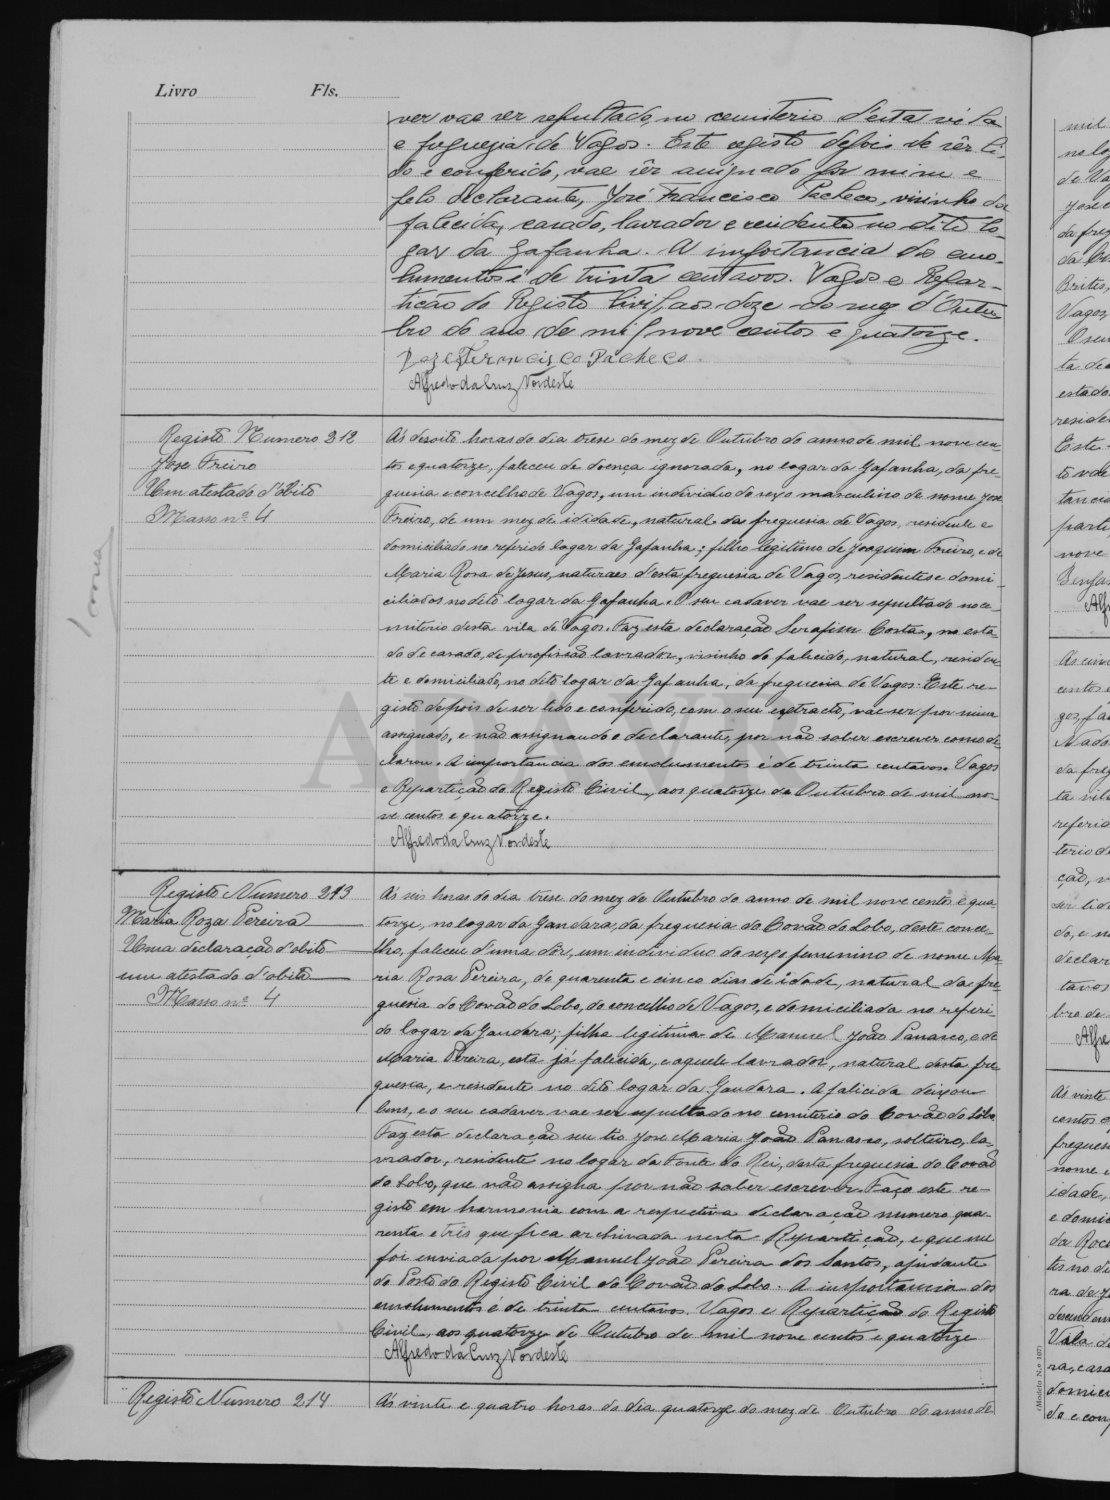 Livro Fls.
ver vae ser sepultado, no cemiterio d'esta vila
e freguezia de Vagos. Este registo depois de sêr li-
do e conferido, vae sêr assignado por mim e
pelo declarante, José Francisco Pacheco, visinho da
falecida, casado, lavrador e residente no dito lo-
gar da Gafanha. A importancia dos emo-
lumentos é de trinta centavos. Vagos e Repar-
tição do Registo Civil, aos doze do mez d'Outu
bro do ano de mil nove centos e quatorze.
Joze Francisco Pacheco
Alfredo da Cruz Nordeste
Registo Numero 212
Joze Freiro
Um atestado d'obito
Masso nº 4
1 mez
Ás desoito horas do dia trese do mez de Outubro do anno de mil nove cen
tos e quatorze, faleceu de doença ignorada, no logar da Gafanha, da fre
guesia e concelho de Vagos, um individuo do sexo masculino de nome Jose
Freiro, de um mez de ididade, natural da freguesia de Vagos, residente e
domiciliado no referido logar da Gafanha; filho legitimo de Joaquim Freiro, e de
Maria Rosa de Jesus, naturaes d'esta freguesia de Vagos, residentes e domi-
ciliados no dito logar da Gafanha. O seu cadaver vae ser sepultado no ce-
miterio desta vila de Vagos. Faz esta declaração Serafim Costa, no esta-
do de casado, de profissão lavrador, visinho do falecido, natural, residen
te e domiciliado, no dito logar da Gafanha, da freguesia de Vagos. Este re-
gisto depois de ser lido e conferido, com o seu extracto, vae ser por mim
assignado, e não assignando o declarante, por não saber escrever como de
clarou. A importancia dos emolumentos é de trinta centavos. Vagos
e Repartição do Registo Civil, aos quatorze de Outubro de mil no-
ve centos e quatorze.
Alfredo da Cruz Nordeste
Registo Numero 213
Maria Roza Pereira
Uma declaração d'obito
um atestado d'obito
Masso nº 4
Ás seis horas do dia trese do mez de Outubro do anno de mil nove centos e qua
torze, no logar da Gandara, da freguesia do Covão do Lobo, deste conce-
lho, faleceu d'uma dôr, um individuo do sexo femenino de nome Ma-
ria Rosa Pereira, de quarenta e cinco dias de idade, natural da fre-
guesia do Covão do Lobo, do concelho de Vagos, e domiciliada no referi-
do logar da Gandara; filha legitima de Manuel João Panasco, e de
Maria Pereira, esta já falecida, e aquele lavrador, natural desta fre
guesia, e residente no dito logar da Gandara. A falicida deixou
bens, e o seu cadaver vae ser sepultado no cemiterio do Covão do Lobo
Faz esta declaração seu tio Jose Maria João Panasco, solteiro, la-
vrador, residente no logar da Fonte do Rei, desta freguesia do Covão
do Lobo, que não assigna por não saber escrever. Faço este re-
gisto em harmonia com a respectiva declaração numero qua-
renta e três que fica archivada nesta Repartição, e que me
foi enviada por Manuel João Pereira dos Santos, ajudante
do Posto do Registo Civil do Covão do Lobo. A importancia dos
emolumentos é de trinta centavos. Vagos e Repartição do Registo
Civil, aos quatorze de Outubro de mil nove centos e quatorze
Alfredo da Cruz Nordeste
Registo Numero 214
Ás vinte e quatro horas do dia quatorze do mez de Outubro do anno de
(Modelo N.º 107)